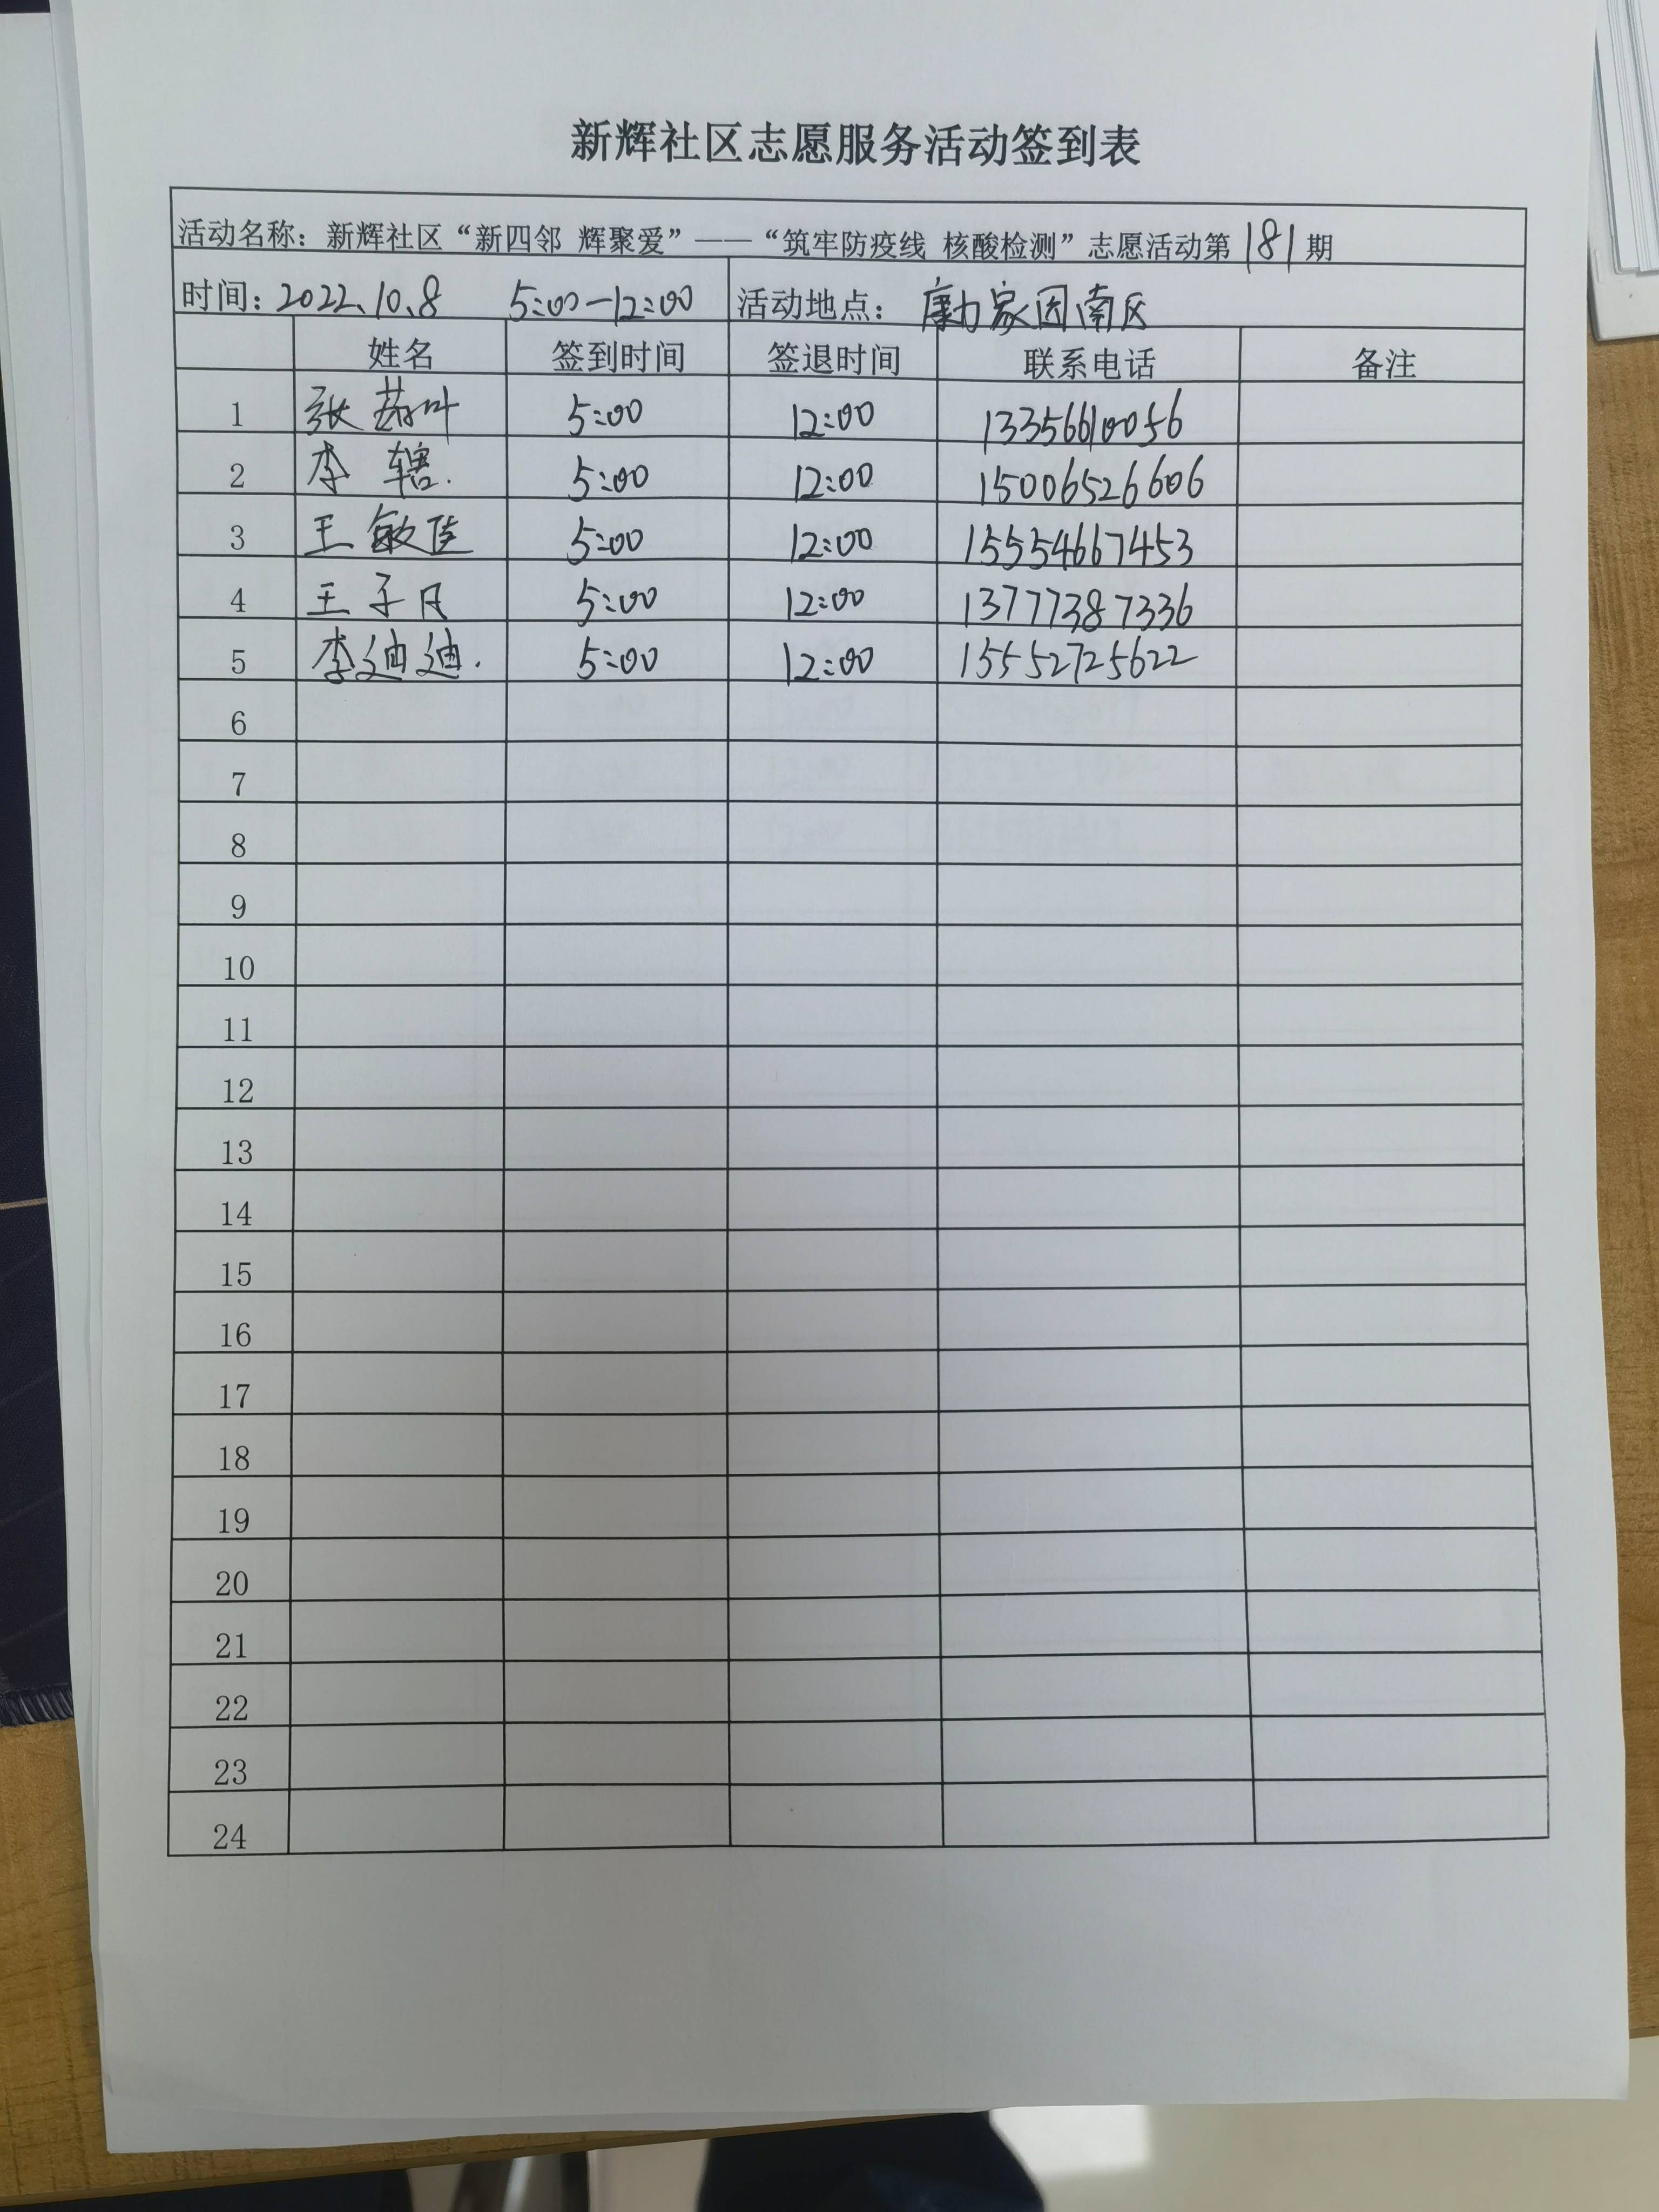 新辉社区志愿服务活动签到表
活动名称：新辉社区“新四邻 辉聚爱”——“筑牢防疫线 核酸检测”志愿活动第181期
时间：2022.10.8 5:00-12:00 活动地点：康力家园南区
姓名 签到时间 签退时间 联系电话 备注
1 张荔叶 5:00 12:00 13356610056
2 李辖 5:00 12:00 15006526606
3 王敏佳 5:00 12:00 15554667453
4 王子月 5:00 12:00 13777387336
5 李迪迪 5:00 12:00 15552725622
6
7
8
9
10
11
12
13
14
15
16
17
18
19
20
21
22
23
24